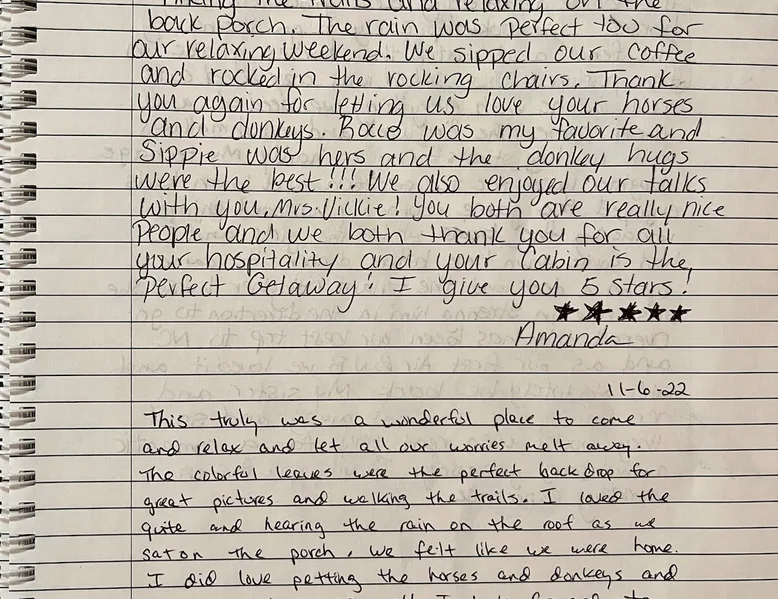 the trails and relaxing on the
back porch. The rain was perfect too for
our relaxing weekend. We sipped our coffee
and rocked in the rocking chairs. Thank
you again for letting us love your horses
and donkeys. was my favorite and
Sippie was hers and the donkey hugs
were the best!!! We also enjoyed our talks
with you, Mrs. Vickie! You both are really nice
People and we both thank you for all
your hospitality and your Cabin is the
Perfect Getaway! I give you 5 stars!
★★★★★
Amanda
11-6-22
This truly was a wonderful place to come
and relax and let all our worries melt away.
The colorful leaves were the perfect backdrop for
great pictures and walking the trails. I loved the
quite and hearing the rain on the roof as we
sat on the porch, we felt like we were home.
I did love petting the horses and donkeys and